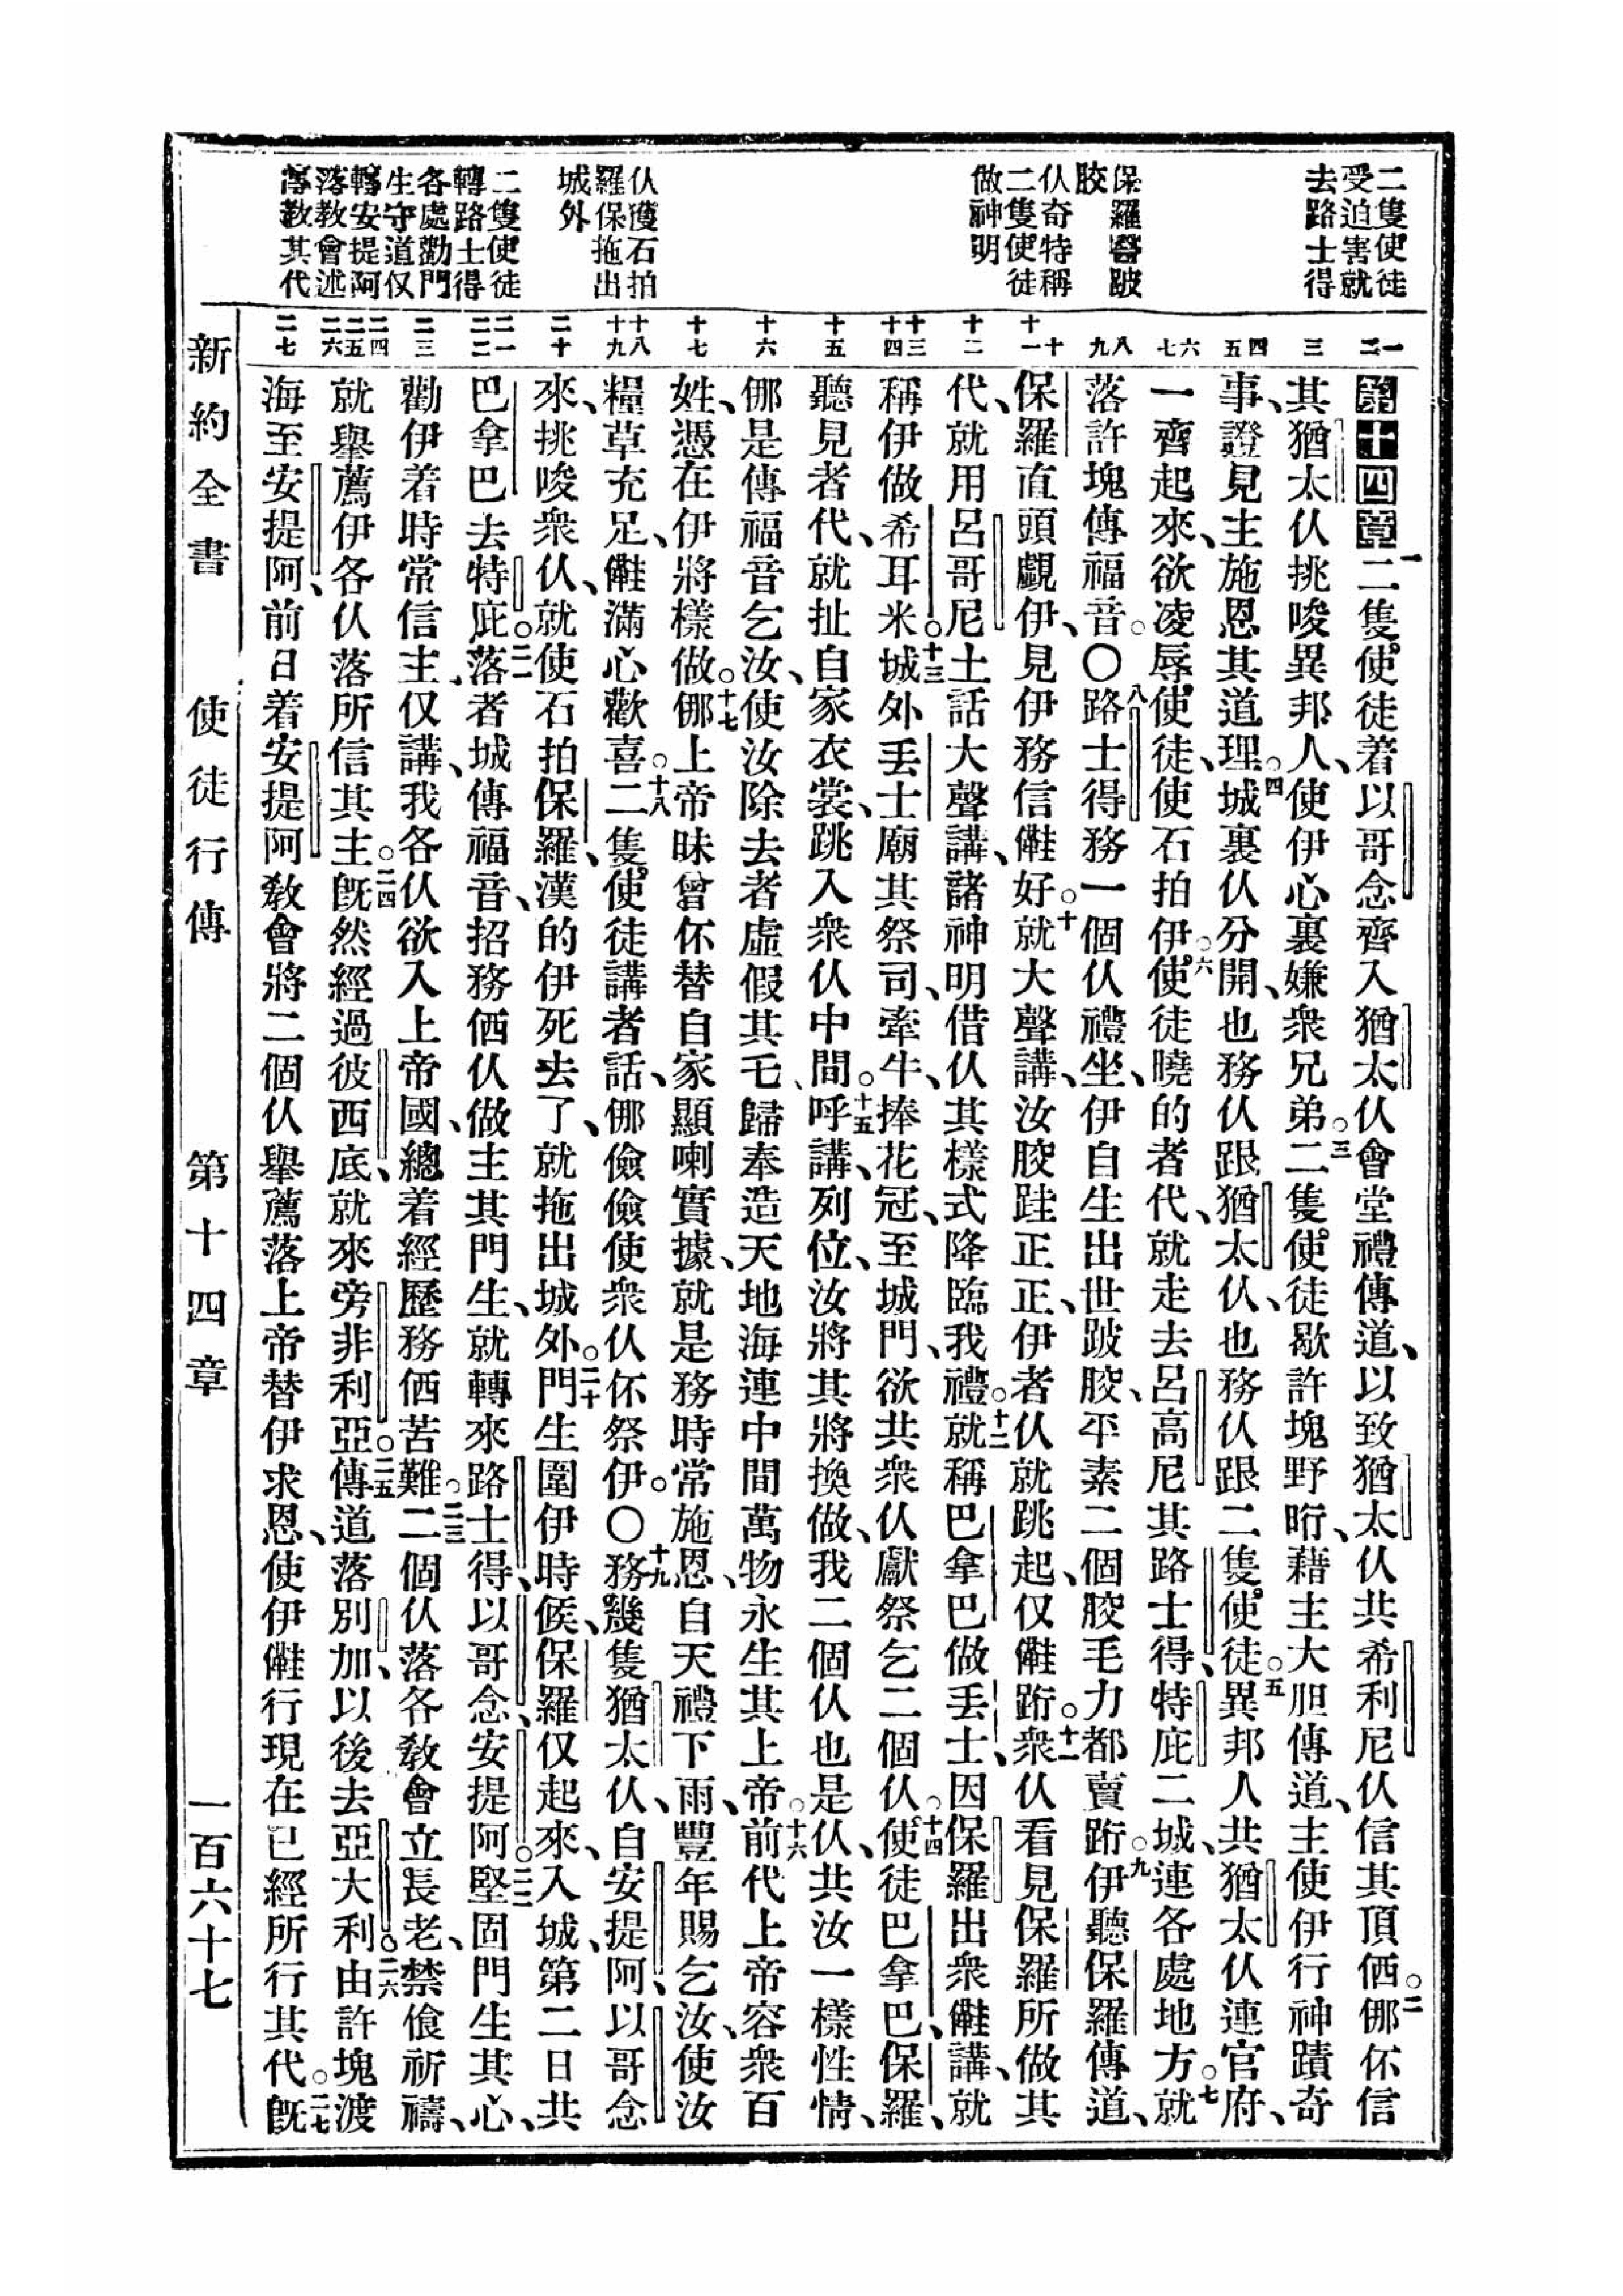 二隻使徒
受迫害就
去路士得
保羅醫跛
骹
仈奇特稱
二隻使徒
做神明
仈獲石拍
羅保拖出
城外
二隻使徒
轉路士得
各處勸門
生守道仅
轉安提阿
落教會述
傳教其代
一二
三
四五
六七
八九
十十一
十二
十三十四
十五
十六
十七
十八十九
二十
二一二二
二三
二四二五二六
二七
第十四章一二隻使徒着以哥念齊入猶太仈會堂禮傳道、以致猶太仈共希利尼仈信其頂価。二㑚伓信
其猶太仈挑唆異邦人、使伊心裏嫌衆兄弟。三二隻使徒歇許塊野㫄、藉主大胆傳道、主使伊行神蹟奇
事、證見主施恩其道理。四城裏仈分開、也務仈跟猶太仈、也務仈跟二隻使徒。五異邦人共猶太仈連官府、
一齊起來、欲凌辱使徒、使石拍伊。六使徒曉的者代、就走去呂高尼其路士得、特庇二城、連各處地方。七就
落許塊傳福音。〇八路士得務一個仈禮坐、伊自生出世跛骹、平素二個骹毛力都賣跲。九伊聽保羅傳道、
保羅直頭覷伊、見伊務信㒕好。十就大聲講、汝骹跬正正、伊者仈就跳起、仅㒕跲。十一衆仈看見保羅所做其
代、就用呂哥尼土話大聲講、諸神明借仈其樣式降臨我禮。十二就稱巴拿巴做丟士、因保羅出衆㒕講、就
稱伊做希耳米。十三城外丢士廟其祭司、牽牛、捧花冠、至城門、欲共衆仈獻祭乞二個仈。十四使徒巴拿巴、保羅、
聽見者代、就扯自家衣裳、跳入衆仈中間。十五呼講、列位、汝將其將換做、我二個仈也是仈、共汝一樣性情、
㑚是傳福音乞汝、使汝除去者虛假其乇、歸奉造天地海連中間萬物永生其上帝。十六前代上帝容衆百
姓、憑在伊將樣做。十七㑚上帝昧曾伓替自家顯喇實據、就是務時常施恩、自天禮下雨、豐年賜乞汝、使汝
糧草充足、㒕滿心歡喜。十八二隻使徒講者話、㑚儉儉使衆仈伓祭伊。〇十九務幾隻猶太仈、自安提阿、以哥念
來、挑唆衆仈、就使石拍保羅、漢的伊死去了、就拖出城外。二十門生圍伊時候、保羅仅起來、入城、第二日共
巴拿巴去特庇。二一落者城傳福音、招務価仈做主其門生、就轉來路士得、以哥念、安提阿。二二堅固門生其心、
勸伊着時常信主、仅講、我各仈欲入上帝國、總着經歷務価苦難。二三二個仈落各教會立長老、禁飡祈禱、
就舉薦伊各仈落所信其主。二四旣然經過彼西底、就來旁非利亞。二五傳道落別加、以後去亞大利。二六由許塊渡
海至安提阿、前日着安提阿教會將二個仈舉薦落上帝替伊求恩、使伊㒕行現在已經所行其代。二七旣
新約全書　使徒行傳　第十四章　一百六十七